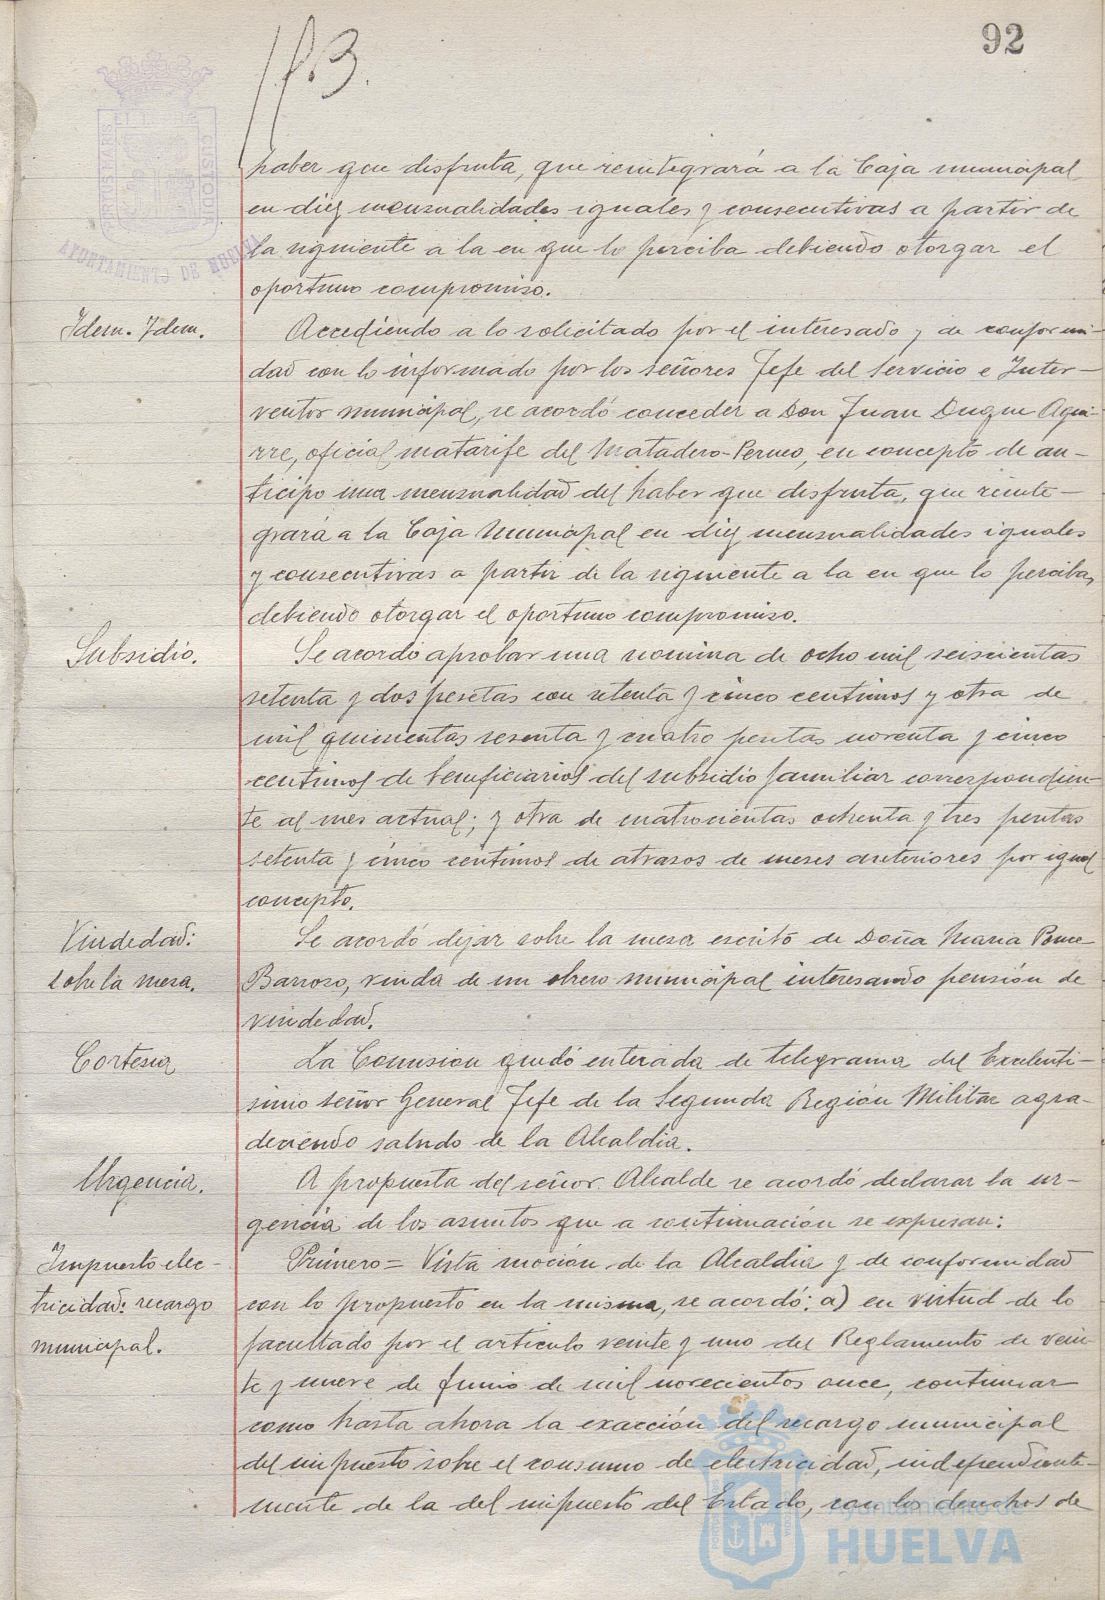 92
haber que disfruta, que reintegrará a la Caja municipal
en diez mensualidades iguales y consecutivas a partir de
la siguiente a la en que lo perciba debiendo otorgar el
oportuno compromiso.
Idem. Idem.
Accediendo a lo solicitado por el interesado y de conformi-
dad con lo informado por los señores Jefe del Servicio e Inter-
ventor municipal, se acordó conceder a Don Juan Duque Agui-
rre, oficial matarife del Matadero-Perneo, en concepto de an-
ticipo una mensualidad del haber que disfruta, que reinte-
grará a la Caja Municipal en diez mensualidades iguales
y consecutivas a partir de la siguiente a la en que lo perciba,
debiendo otorgar el oportuno compromiso.
Subsidio.
Se acordó aprobar una nomina de ocho mil seiscientas
setenta y dos pesetas con setenta y cinco centimos y otra de
mil quinientas sesenta y cuatro pesetas noventa y cinco
centimos de beneficiarios del subsidio familiar correspondien-
te al mes actual; y otra de cuatrocientas ochenta y tres pesetas
setenta y cinco centimos de atrasos de meses anteriores por igual
concepto.
Viudedad:
sobre la mesa.
Se acordó dejar sobre la mesa escrito de Doña Maria Ponce
Barroso, viuda de un obrero municipal interesando pensión de
viudedad.
Cortesia
La Comision quedó enterada de telegrama del Excelenti-
simo señor General Jefe de la Segunda Región Militar agra-
deciendo saludo de la Alcaldia.
Urgencia.
A propuesta del señor Alcalde se acordó declarar la ur-
gencia de los asuntos que a continuación se expresan:
Impuesto elec-
tricidad: recargo
municipal.
Primero = Vista moción de la Alcaldia y de conformidad
con lo propuesto en la misma, se acordó: a) en virtud de lo
facultado por el articulo veinte y uno del Reglamento de vein-
te y nueve de Junio de mil novecientos once, continuar
como hasta ahora la exacción del recargo municipal
del impuesto sobre el consumo de electricidad, independiente-
mente de la del impuesto del Estado, con los derechos de
PORTUS MARIS
ET TERRAE
CUSTODIA
AYUNTAMIENTO DE HUELVA
Ayuntamiento de
HUELVA